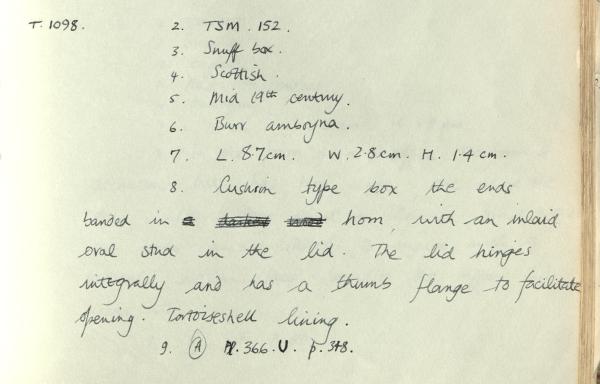 T. 1098. 2. TSM. 152.
3. Snuff box.
4. Scottish.
5. Mid 19th century.
6. Burr amboyna.
7. L. 8.7cm. W. 2.8cm. H. 1.4 cm.
8. Cushion type box the ends
banded in a darker wood horn, with an inlaid
oval stud in the lid. The lid hinges
integrally and has a thumb flange to facilitate
opening. Tortoiseshell lining.
9. A Pl. 366. U. p. 348.